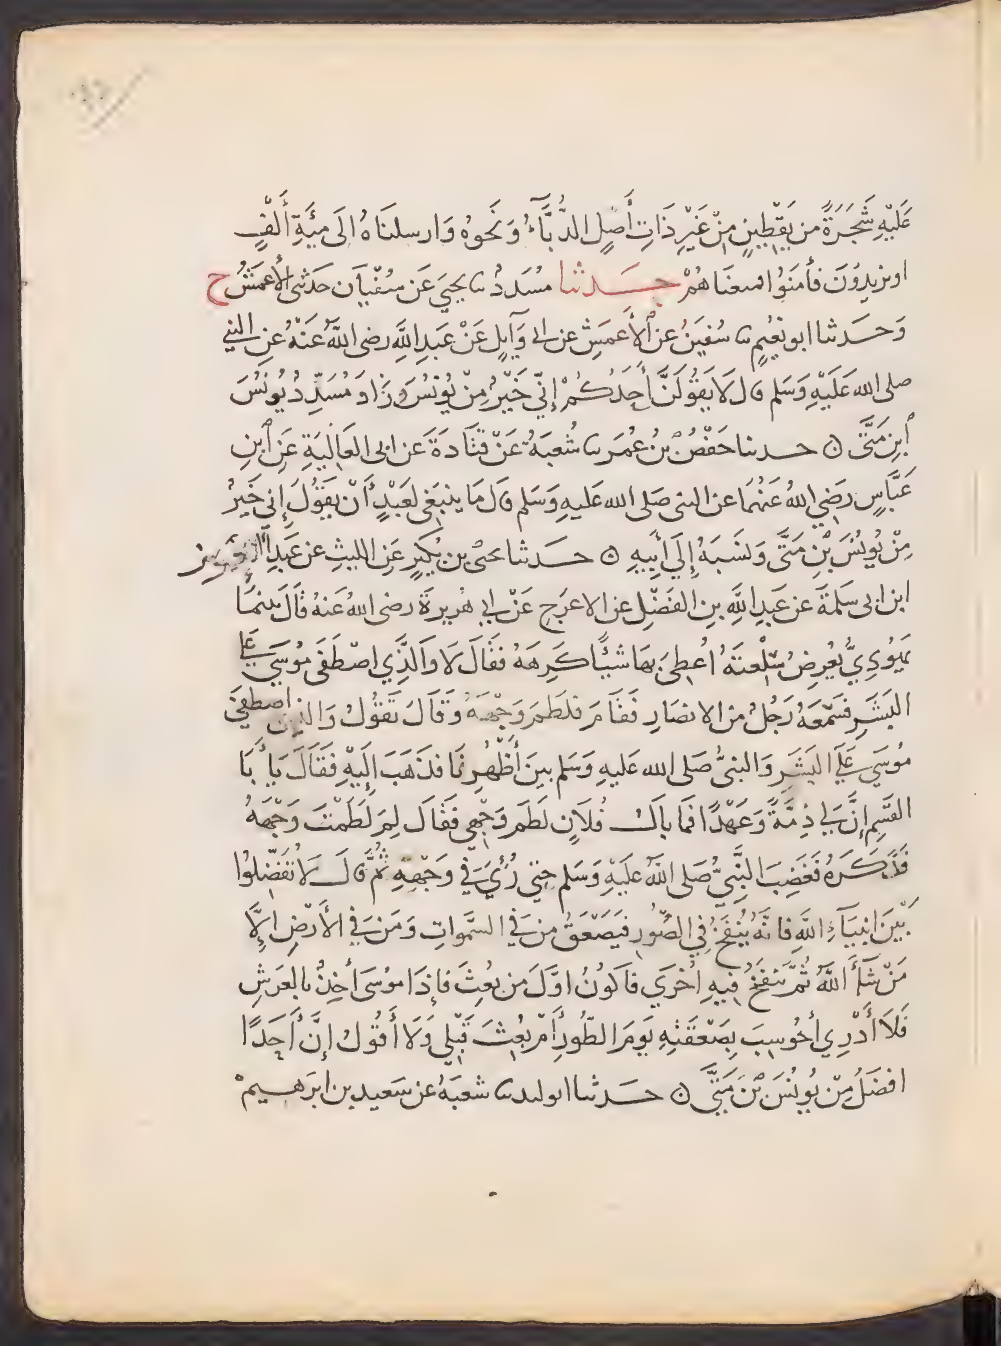 عَلَيْهِ شَجَرَةً من يَقْطِينٍ مِنْ غَيْرِ ذَاتِ أَصْلٍ الدُّبَّآءُ وَنَحْوُهُ وَارسلنَاهُ الَى مِيَةِ أَلْفٍ
او يزيدُونَ فَأمَنُوا فمتعنَاهُمْ حَدثنا مُسَدَّدٌ نا يحيَى عَن سُفيَان حَدثنى الأَعمَشُ ح
وَحَدثنا ابو نُعَيمٍ نا سُفيَنُ عن الأَعمَشِ عن ابى وَآيلٍ عَنْ عَبدِ اللَّهِ رضى اللَّهُ عَنْهُ عَنِ النبي
صلى الله عَلَيْهِ وَسَلم قال لَا يَقُولَنَّ أَحَدُكُمْ إِنّي خَيْرٌ مِنْ يُونُسَ وزَادَ مُسَدَّدٌ يُونُسَ
ابنِ مَتَّى ۞ حدثنا حَفْصُ بْنُ عُمَرَ نا شُعبَةُ عَنْ قتَادَةَ عَن ابى العَالِيَةِ عَنِ ابنِ
عَبَّاسٍ رضَي اللهُ عَنْهُمَا عن النبى صَلى الله عَليهِ وَسَلم قال مَا ينبَغى لعَبْدٍ أَنْ يَقُولَ إِنى خَيرٌ
مِنْ يُونُسَ بْنِ مَتَّى وَنَسَبَهُ إِلَى أَبِيهِ ۞ حَدَثنا يحيى بن بُكَيرٍ عَنِ الليثِ عن عَبدِ العزيز
ابن ابى سَلمَةَ عن عَبدِ اللَّهِ بنِ الفَضْلِ عن الاعرَجِ عَنْ ابى هُرَيرَةَ رضى اللهُ عَنهُ قَالَ بينمَا
يَهُودِيٌّ يَعْرِضُ سِلْعتَهُ أُعطِىَ بهَا شيْئًا كَرِهَهُ فقَالَ لَا وَالَّذِي اصْطَفَى مُوسَى عَلَى
البَشَرِ فسَمْعَهُ رَجُلٌ من الانصَارِ فَقَامَ فلَطَمَ وَجْهَهُ وَقَالَ تَقُولُ وَالذى اصطَفَى
مُوسَى عَلَى البَشَرِ وَالنبىُّ صَلى الله عَليهِ وَسَلم بينَ أَظْهُرِنَا فذَهَبَ إِلَيْهِ فَقَالَ يَا أبَا
القَسِمِ إِنَّ لي ذِمَّةً وَعَهْدًا فمَا بالُ فُلَانٍ لَطَمَ وَجْهِي فقَالَ لِمَ لَطَمْتَ وَجْهَهُ
فَذَكَرَهُ فَغَضِبَ النَّبِيُّ صَلى اللهُ عَلَيْهِ وَسَلم حتى رُؤيَ في وَجْهِهِ ثُمَّ قالَ لَا تُفَضِّلوُا
بَيْنَ انبِيَآءِ اللَّهِ فانَّهُ يُنْفَخُ فِي الصُّورِ فيَصْعَقُ من في السَّموَاتِ وَمَنْ في الأَرْضِ الَّا
مَنْ شَآءَ اللَّهُ ثُمَّ يُنفَخُ فِيهِ أُخْرَي فأَكُونُ اوَّلَ مَن بُعِثَ فَإِذَا مُوسَى أَخِذٌ بالعَرْشِ
فَلَا أَدْرِي أَحُوسِبَ بِصَعْقَتِهِ يَومَ الطُّورِ أَمْ بُعِثَ قَبْلِي وَلَا أَقُولُ إِنَّ أَحَدًا
افضَلُ مِنْ يُونُسَ بْنِ مَتَّى ۞ حَدثنا ابو الوليد نا شعبَةُ عَنْ سَعيدِ بن ابرَهِيمْ